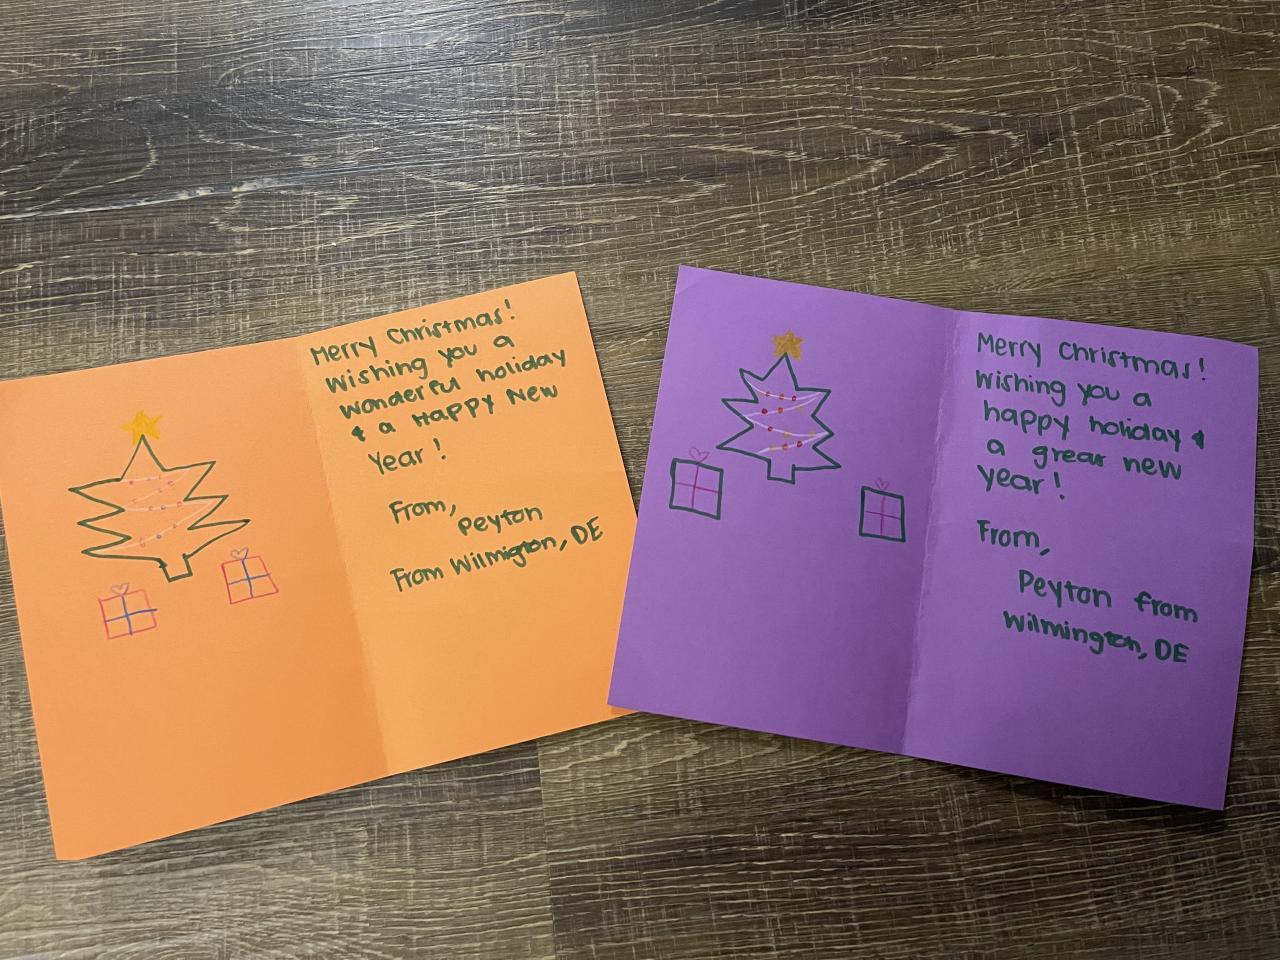 Merry Christmas!
Wishing you a
wonderful holiday
& a Happy New
Year!
From,
Peyton
From Wilmington, DE
Merry Christmas!
Wishing you a
happy holiday &
a great new
year!
From,
Peyton from
Wilmington, DE